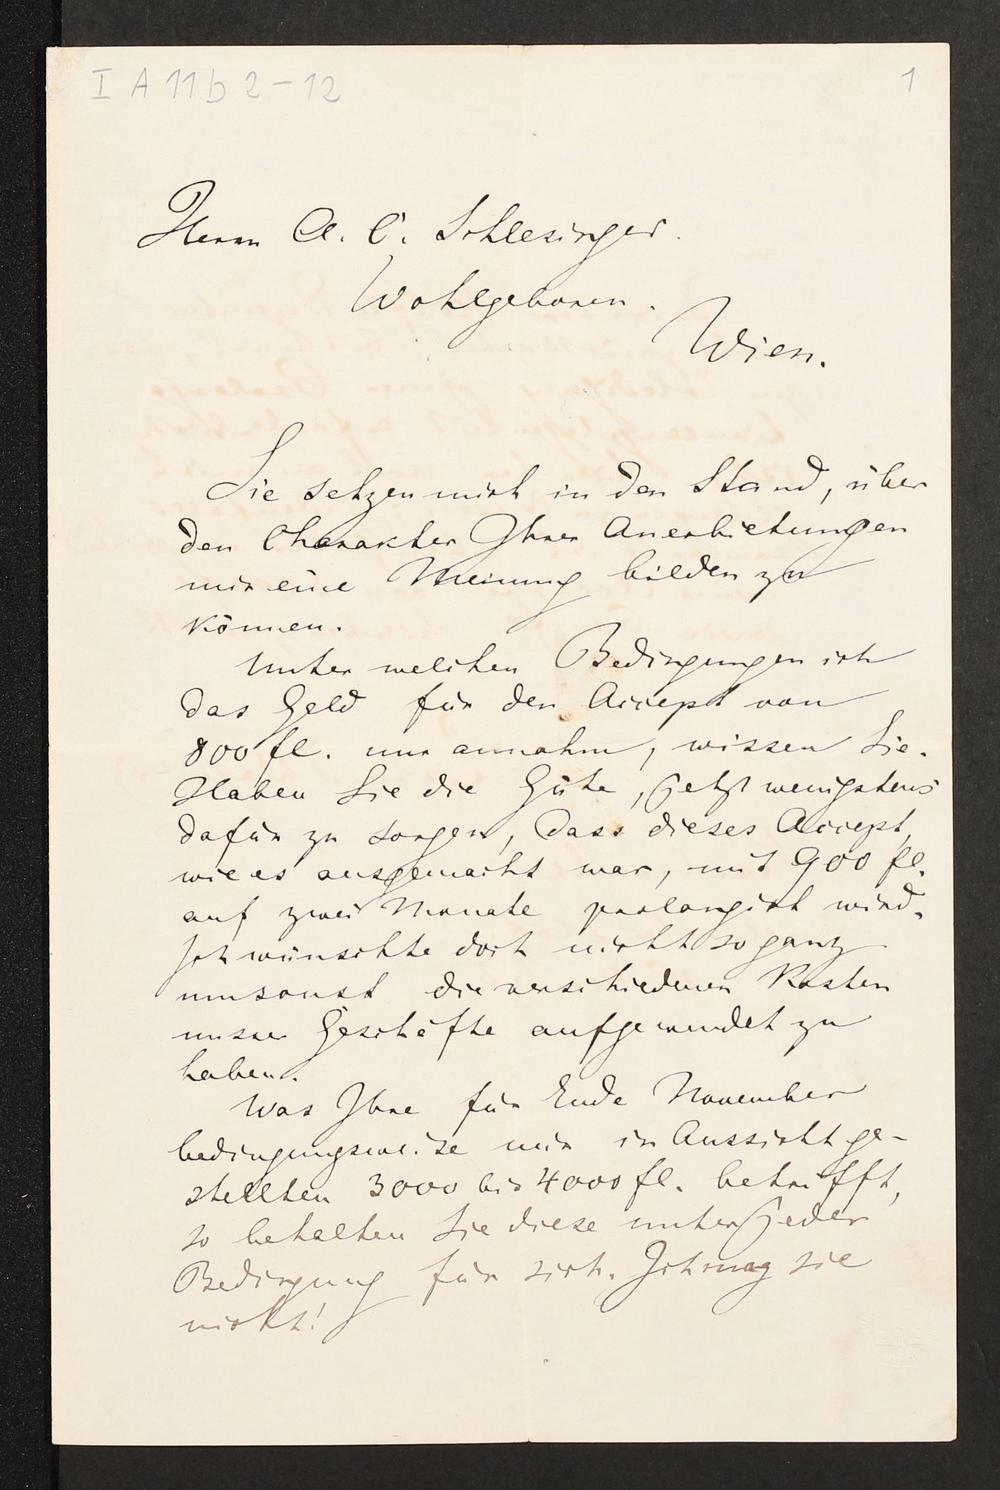 I A 11 b 2-12
1
Herrn A. C. Schlesinger.
Wohlgeboren.
Wien.
Sie setzen mich in den Stand, über
den Charakter Ihrer Anerbietungen
mir eine Meinung bilden zu
können.
Unter welchen Bedingungen ich
das Geld für den Accept von
800 fl. nur annahm, wissen Sie.
Haben Sie die Güte, jetzt wenigstens
dafür zu sorgen, dass dieses Accept,
wie es ausgemacht war, mit 900 fl.
auf zwei Monate prolongirt wird.
Ich wünschte doch nicht so ganz
umsonst die verschiedenen Kosten
unsrer Geschäfte aufgewendet zu
haben.
Was Ihre für Ende November
bedingungsweise mir in Aussicht ge-
stellten 3000 bis 4000 fl. betrifft,
so behalten Sie diese unter jeder
Bedingung für sich. Ich mag sie
nicht!